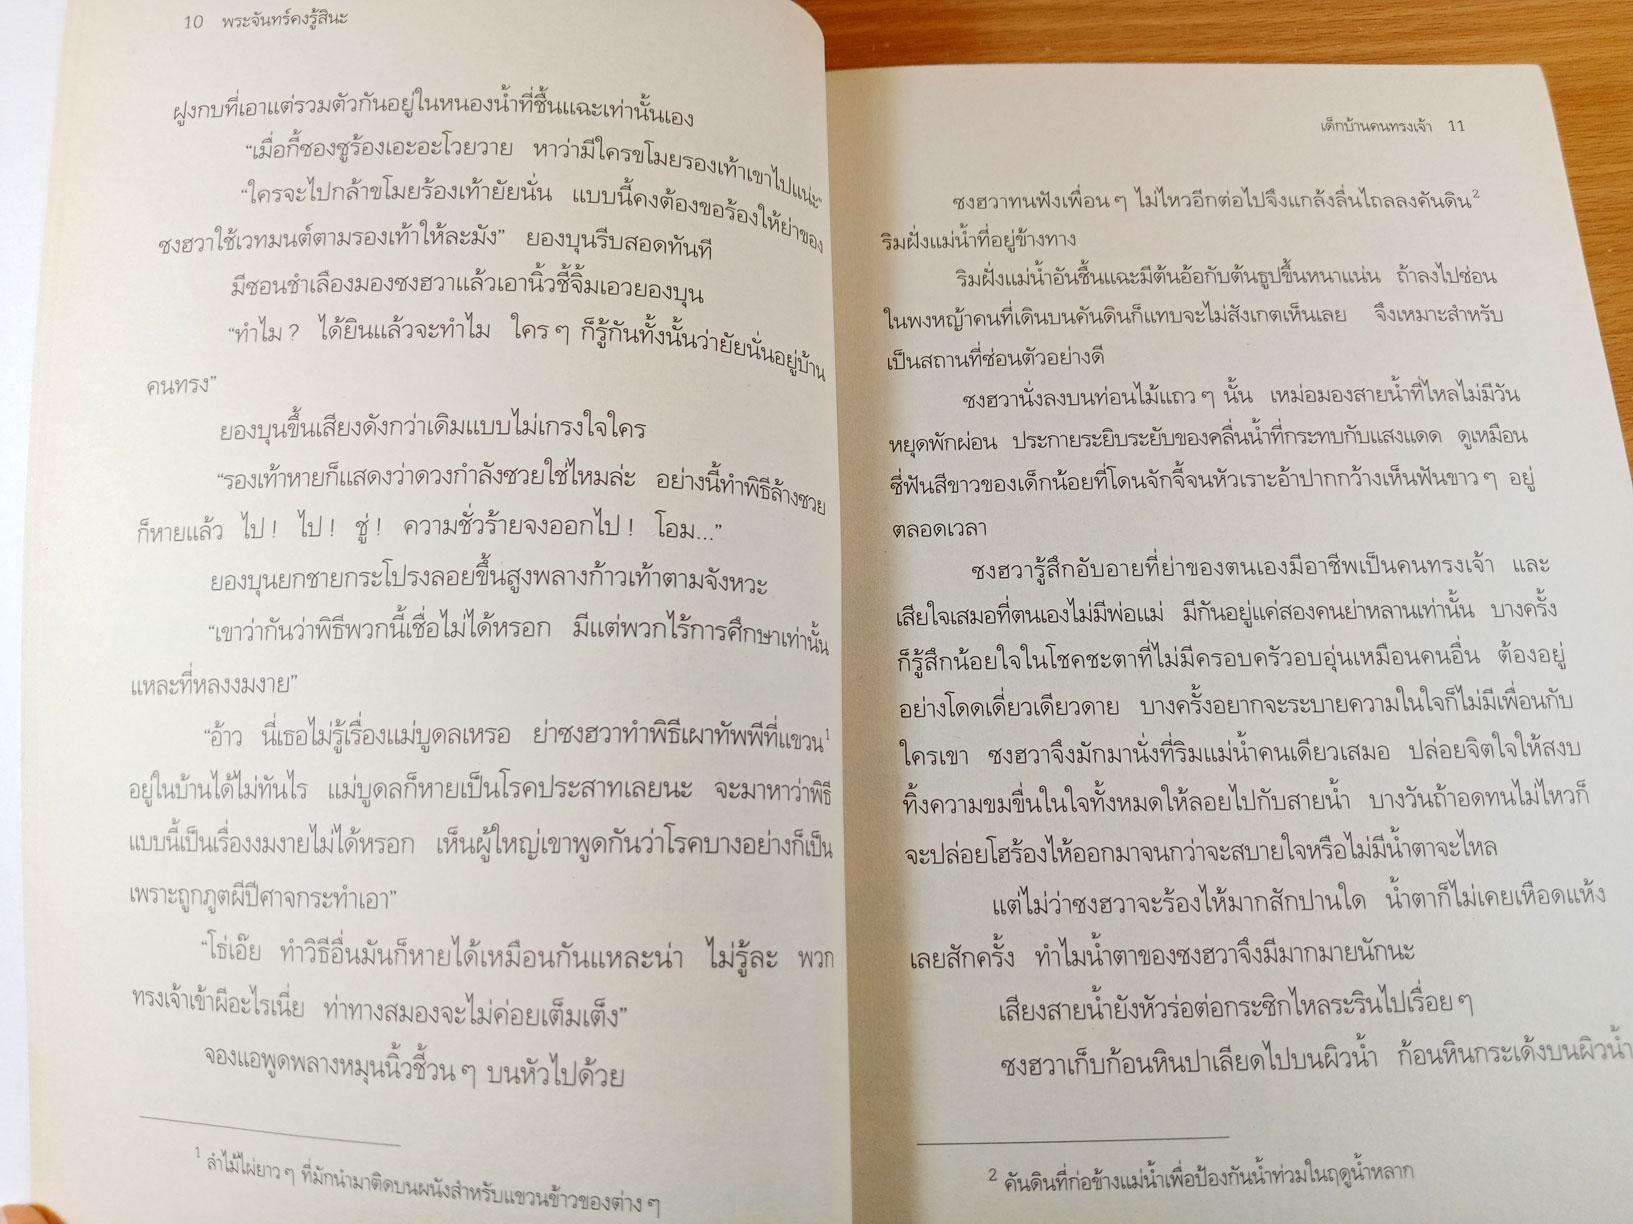 10 พระจันทร์คงรู้สินะ
ฝูงกบที่เอาแต่รวมตัวกันอยู่ในหนองน้ำที่ชื้นแฉะเท่านั้นเอง
“เมื่อกี้ชองชูร้องเอะอะโวยวาย หาว่ามีใครขโมยรองเท้าเขาไปแน่ะ”
“ใครจะไปกล้าขโมยร้องเท้ายัยนั่น แบบนี้คงต้องขอร้องให้ย่าของ
ซงฮวาใช้เวทมนต์ตามรองเท้าให้ละมัง” ยองบุนรีบสอดทันที
มีซอนชำเลืองมองซงฮวาแล้วเอานิ้วชี้จิ้มเอวยองบุน
“ทำไม ? ได้ยินแล้วจะทำไม ใคร ๆ ก็รู้กันทั้งนั้นว่ายัยนั่นอยู่บ้าน
คนทรง”
ยองบุนขึ้นเสียงดังกว่าเดิมแบบไม่เกรงใจใคร
“รองเท้าหายก็แสดงว่าดวงกำลังซวยใช่ไหมล่ะ อย่างนี้ทำพิธีล้างซวย
ก็หายแล้ว ไป ! ไป ! ชู่ ! ความชั่วร้ายจงออกไป ! โอม...”
ยองบุนยกชายกระโปรงลอยขึ้นสูงพลางก้าวเท้าตามจังหวะ
“เขาว่ากันว่าพิธีพวกนี้เชื่อไม่ได้หรอก มีแต่พวกไร้การศึกษาเท่านั้น
แหละที่หลงงมงาย”
“อ้าว นี่เธอไม่รู้เรื่องแม่บูดลเหรอ ย่าซงฮวาทำพิธีเผาทัพพีที่แขวน¹
อยู่ในบ้านได้ไม่ทันไร แม่บูดลก็หายเป็นโรคประสาทเลยนะ จะมาหาว่าพิธี
แบบนี้เป็นเรื่องงมงายไม่ได้หรอก เห็นผู้ใหญ่เขาพูดกันว่าโรคบางอย่างก็เป็น
เพราะถูกภูตผีปีศาจกระทำเอา”
“โธ่เอ๊ย ทำวิธีอื่นมันก็หายได้เหมือนกันแหละน่า ไม่รู้ละ พวก
ทรงเจ้าเข้าผีอะไรเนี่ย ท่าทางสมองจะไม่ค่อยเต็มเต็ง”
จองแอพูดพลางหมุนนิ้วชี้วน ๆ บนหัวไปด้วย
¹ ลำไม้ไผ่ยาว ๆ ที่มักนำมาติดบนผนังสำหรับแขวนข้าวของต่าง ๆ
เด็กบ้านคนทรงเจ้า 11
ซงฮวาทนฟังเพื่อน ๆ ไม่ไหวอีกต่อไปจึงแกล้งลื่นไถลลงคันดิน²
ริมฝั่งแม่น้ำที่อยู่ข้างทาง
ริมฝั่งแม่น้ำอันชื้นแฉะมีต้นอ้อกับต้นธูปขึ้นหนาแน่น ถ้าลงไปซ่อน
ในพงหญ้าคนที่เดินบนคันดินก็แทบจะไม่สังเกตเห็นเลย จึงเหมาะสำหรับ
เป็นสถานที่ซ่อนตัวอย่างดี
ซงฮวานั่งลงบนท่อนไม้แถว ๆ นั้น เหม่อมองสายน้ำที่ไหลไม่มีวัน
หยุดพักผ่อน ประกายระยิบระยับของคลื่นน้ำที่กระทบกับแสงแดด ดูเหมือน
ซี่ฟันสีขาวของเด็กน้อยที่โดนจักจี้จนหัวเราะอ้าปากกว้างเห็นฟันขาว ๆ อยู่
ตลอดเวลา
ซงฮวารู้สึกอับอายที่ย่าของตนเองมีอาชีพเป็นคนทรงเจ้า และ
เสียใจเสมอที่ตนเองไม่มีพ่อแม่ มีกันอยู่แค่สองคนย่าหลานเท่านั้น บางครั้ง
ก็รู้สึกน้อยใจในโชคชะตาที่ไม่มีครอบครัวอบอุ่นเหมือนคนอื่น ต้องอยู่
อย่างโดดเดี่ยวเดียวดาย บางครั้งอยากจะระบายความในใจก็ไม่มีเพื่อนกับ
ใครเขา ซงฮวาจึงมักมานั่งที่ริมแม่น้ำคนเดียวเสมอ ปล่อยจิตใจให้สงบ
ทิ้งความขมขื่นในใจทั้งหมดให้ลอยไปกับสายน้ำ บางวันถ้าอดทนไม่ไหวก็
จะปล่อยโฮร้องไห้ออกมาจนกว่าจะสบายใจหรือไม่มีน้ำตาจะไหล
แต่ไม่ว่าซงฮวาจะร้องไห้มากสักปานใด น้ำตาก็ไม่เคยเหือดแห้ง
เลยสักครั้ง ทำไมน้ำตาของซงฮวาจึงมีมากมายนักนะ
เสียงสายน้ำยังหัวร่อต่อกระซิกไหลระรินไปเรื่อย ๆ
ซงฮวาเก็บก้อนหินปาเลียดไปบนผิวน้ำ ก้อนหินกระเด้งบนผิวน้ำ
² คันดินที่ก่อข้างแม่น้ำเพื่อป้องกันน้ำท่วมในฤดูน้ำหลาก